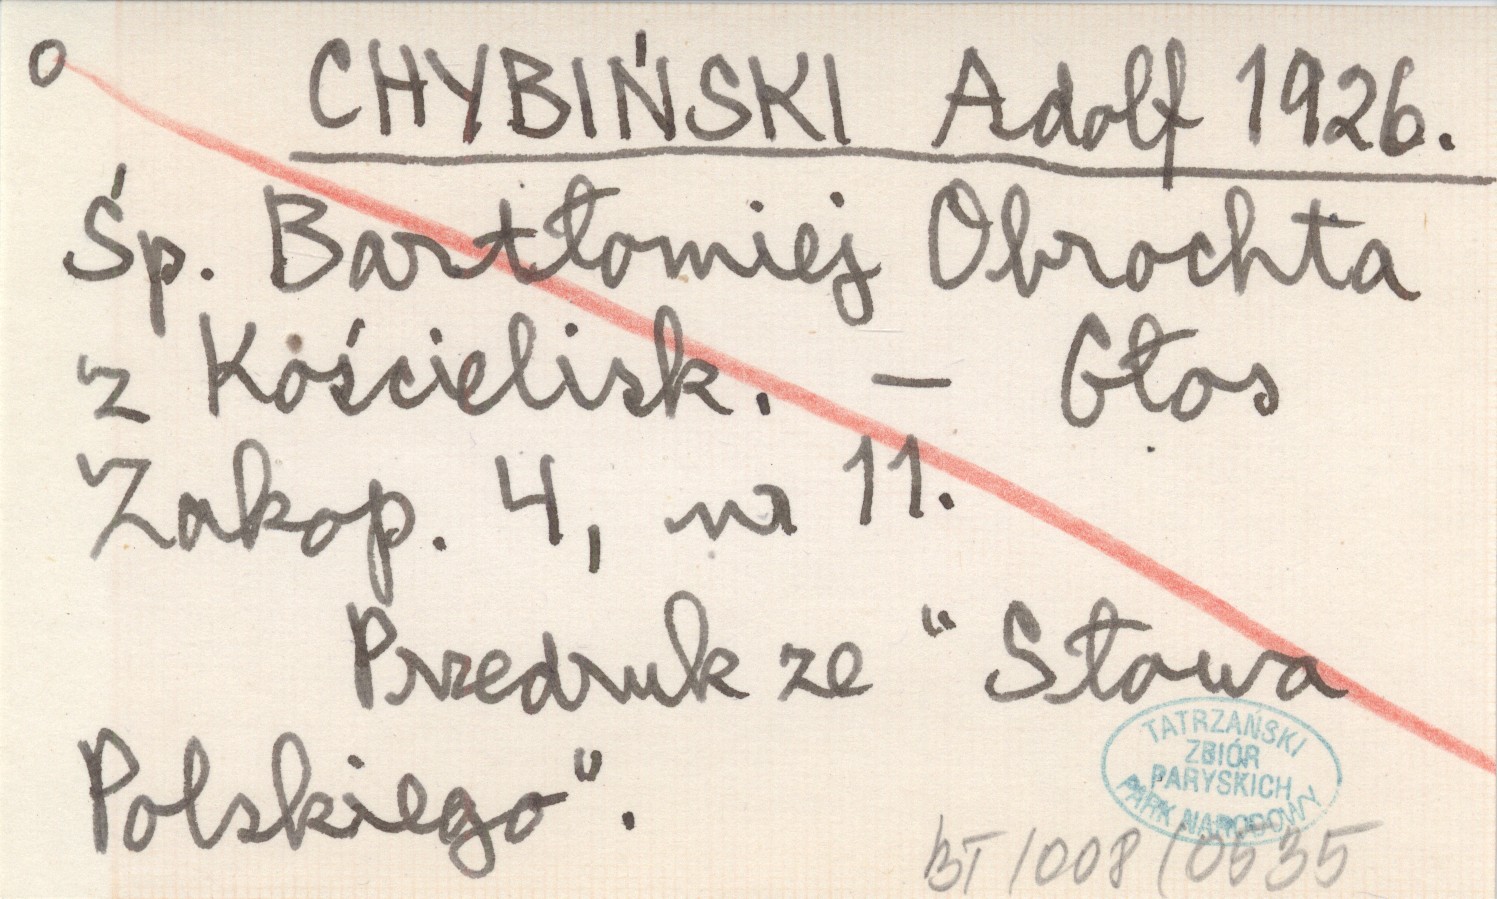 o CHYBIŃSKI Adolf 1926.
Śp. Bartłomiej Obrochta
z Kościelisk. — Głos
Zakop. 4, nr 11.
Przedruk ze "Słowa
Polskiego".
TATRZAŃSKI
ZBIÓR
PARYSKICH
PARK NARODOWY
BT/008/0535